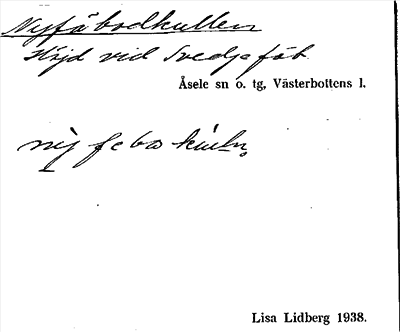 Nyfäbodkullen
Höjd vid Svedje fäb.
Åsele sn o. tg, Västerbottens l.
Lisa Lidberg 1938.